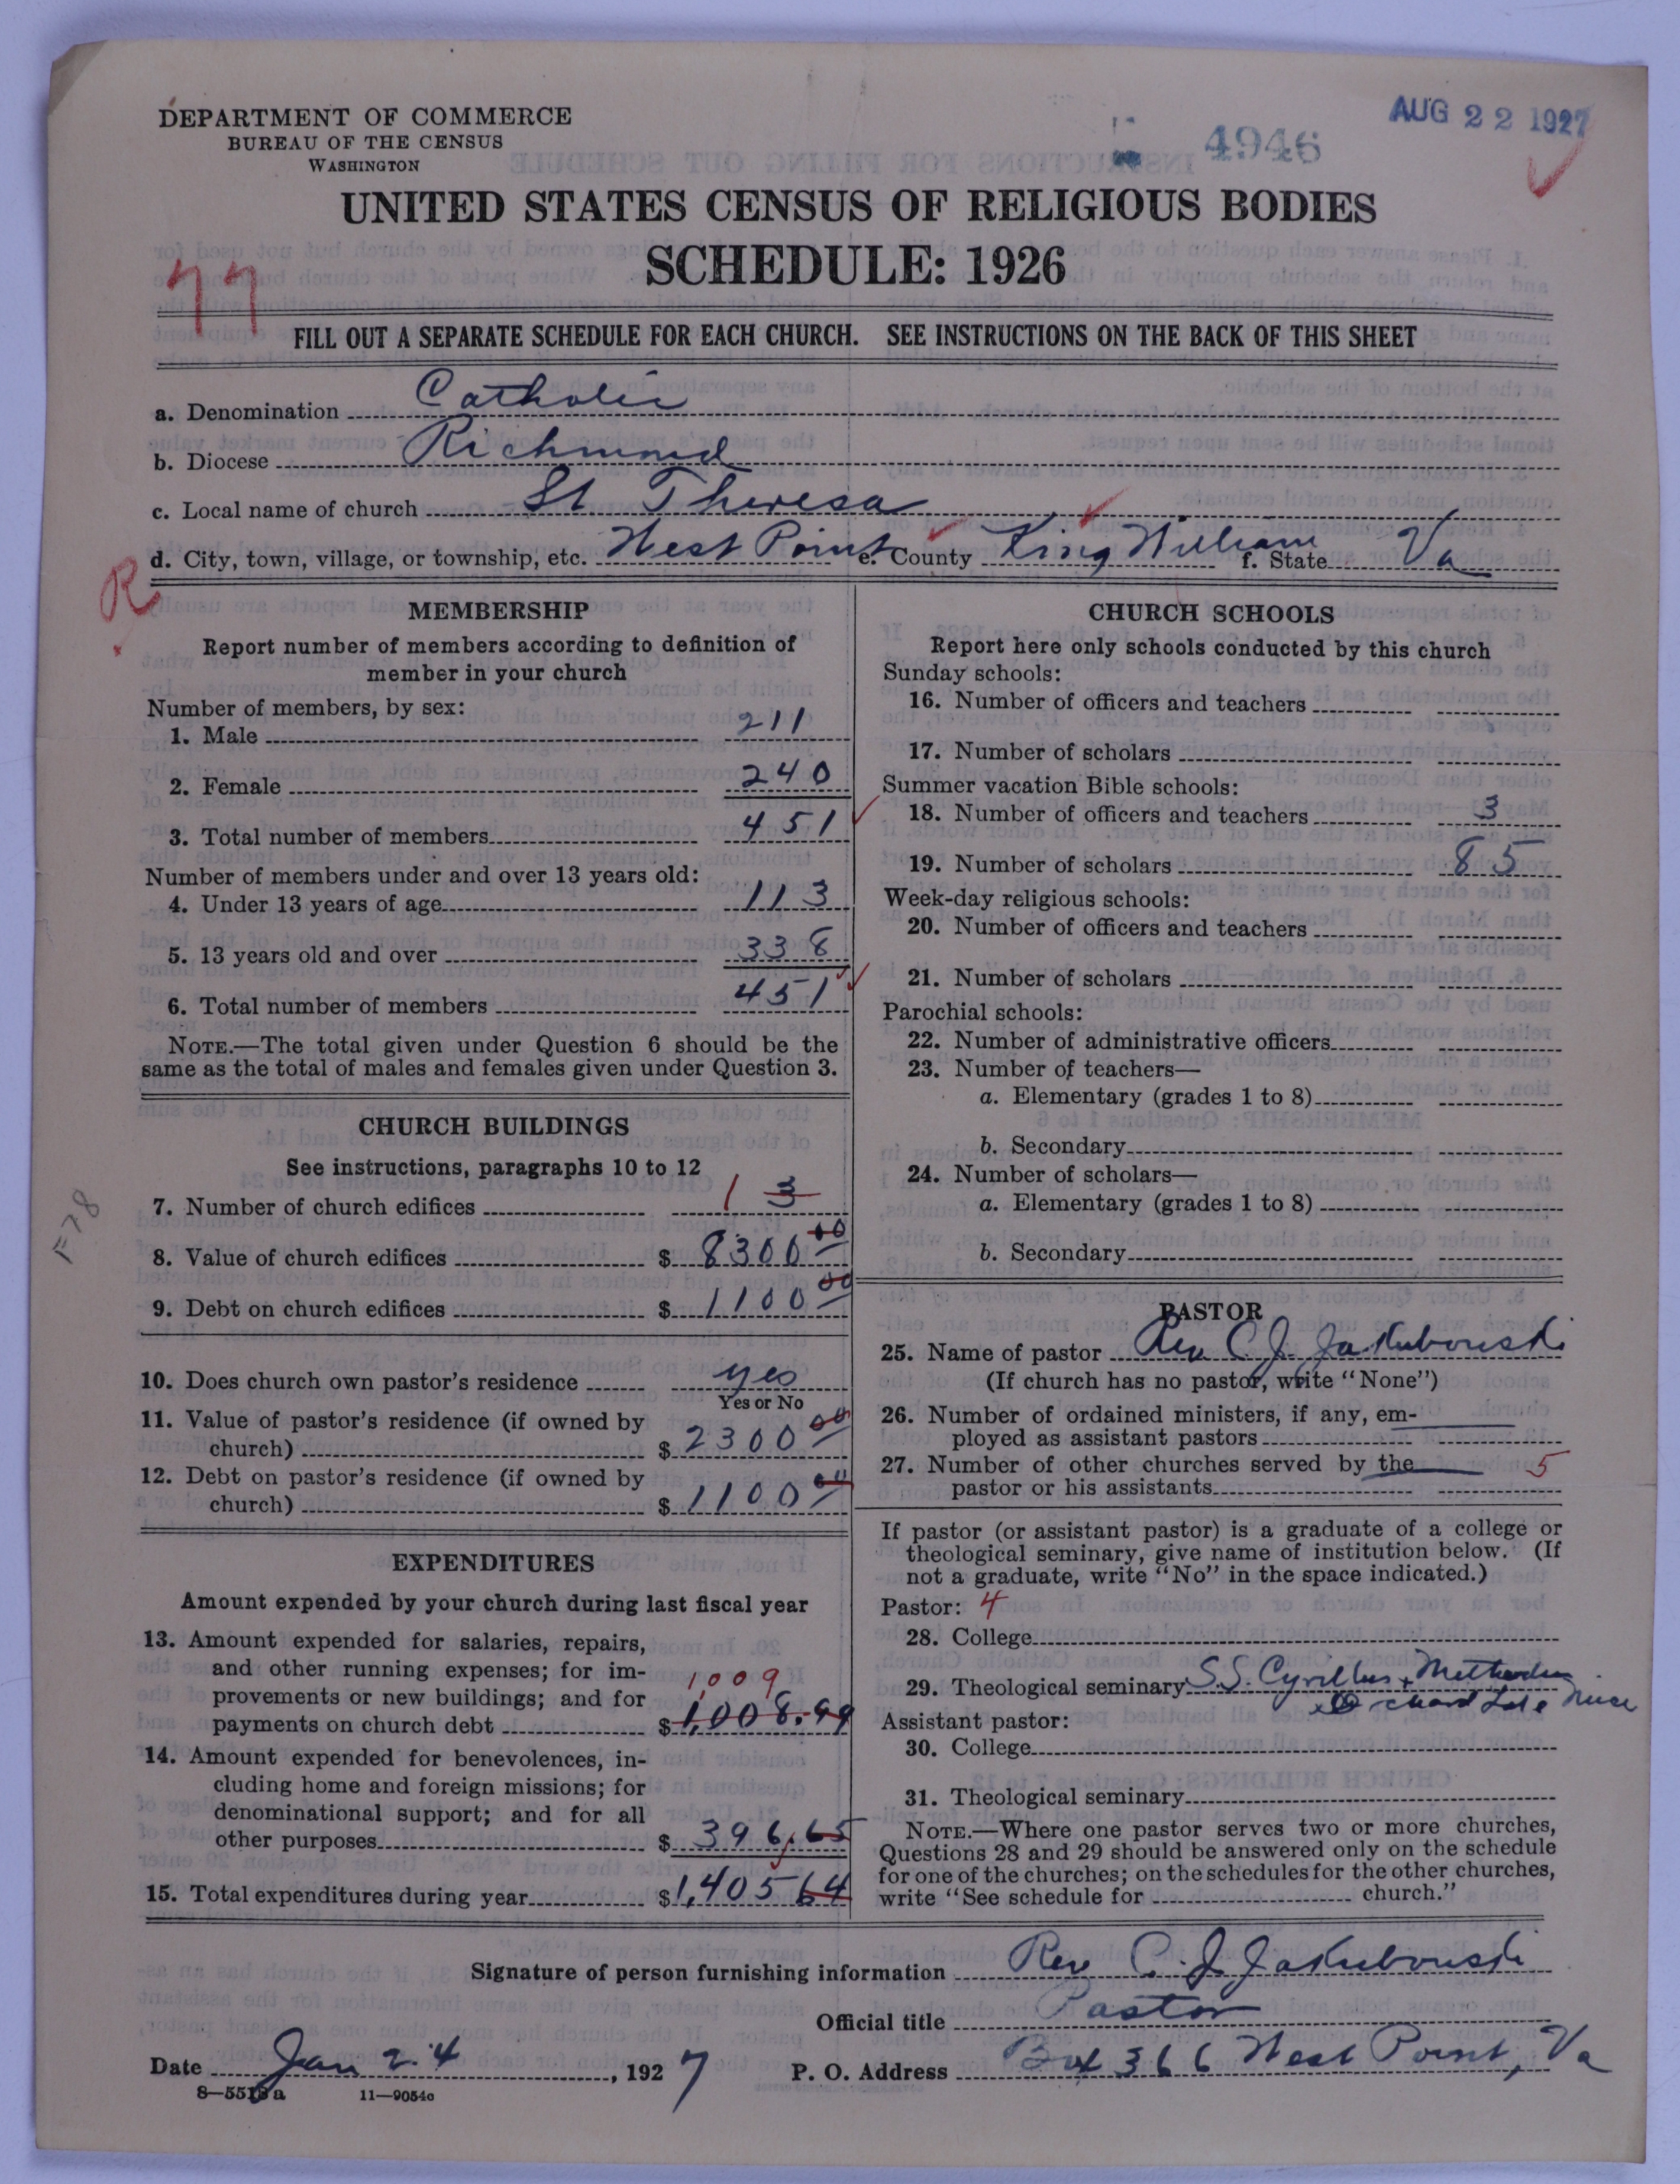 DEPARTMENT OF COMMERCE
BUREAU OF THE CENSUS
WASHINGTON
4946
AUG 22 1927
UNITED STATES CENSUS OF RELIGIOUS BODIES
SCHEDULE: 1926
77
FILL OUT A SEPARATE SCHEDULE FOR EACH CHURCH. SEE INSTRUCTIONS ON THE BACK OF THIS SHEET
a. Denomination Catholic
b. Diocese Richmond
c. Local name of church St Theresa
d. City, town, village, or township, etc. West Point e. County King William f. State Va
R
MEMBERSHIP
Report number of members according to definition of
member in your church
Number of members, by sex:
1. Male 211
2. Female 240
3. Total number of members 451
Number of members under and over 13 years old:
4. Under 13 years of age 113
5. 13 years old and over 338
6. Total number of members 451
NOTE.—The total given under Question 6 should be the
same as the total of males and females given under Question 3.
CHURCH BUILDINGS
See instructions, paragraphs 10 to 12
7. Number of church edifices 1 3
F78
8. Value of church edifices $ 8300 00
9. Debt on church edifices $ 1100 00
10. Does church own pastor's residence yes
Yes or No
11. Value of pastor's residence (if owned by
church) $ 2300 00
12. Debt on pastor's residence (if owned by
church) $ 1100 00
EXPENDITURES
Amount expended by your church during last fiscal year
13. Amount expended for salaries, repairs,
and other running expenses; for im-
provements or new buildings; and for 1,009
payments on church debt $ 1,008.99
14. Amount expended for benevolences, in-
cluding home and foreign missions; for
denominational support; and for all
other purposes $ 396.65
15. Total expenditures during year $ 1,405 64
CHURCH SCHOOLS
Report here only schools conducted by this church
Sunday schools:
16. Number of officers and teachers
17. Number of scholars
Summer vacation Bible schools:
18. Number of officers and teachers 3
19. Number of scholars 85
Week-day religious schools:
20. Number of officers and teachers
21. Number of scholars
Parochial schools:
22. Number of administrative officers
23. Number of teachers—
a. Elementary (grades 1 to 8)
b. Secondary
24. Number of scholars—
a. Elementary (grades 1 to 8)
b. Secondary
PASTOR
25. Name of pastor Rev C. J. Jakubowski
(If church has no pastor, write "None")
26. Number of ordained ministers, if any, em-
ployed as assistant pastors
27. Number of other churches served by the 5
pastor or his assistants
If pastor (or assistant pastor) is a graduate of a college or
theological seminary, give name of institution below. (If
not a graduate, write "No" in the space indicated.)
Pastor: 4
28. College
29. Theological seminary S.S. Cyrillus + Methodius
Orchard Lake
Assistant pastor:
30. College
31. Theological seminary
NOTE.—Where one pastor serves two or more churches,
Questions 28 and 29 should be answered only on the schedule
for one of the churches; on the schedules for the other churches,
write "See schedule for church."
Signature of person furnishing information Rev C. J. Jakubowski
Official title Pastor
Date Jan 24, 1927 P. O. Address Box 366 West Point, Va
8-5518a 11—9054a